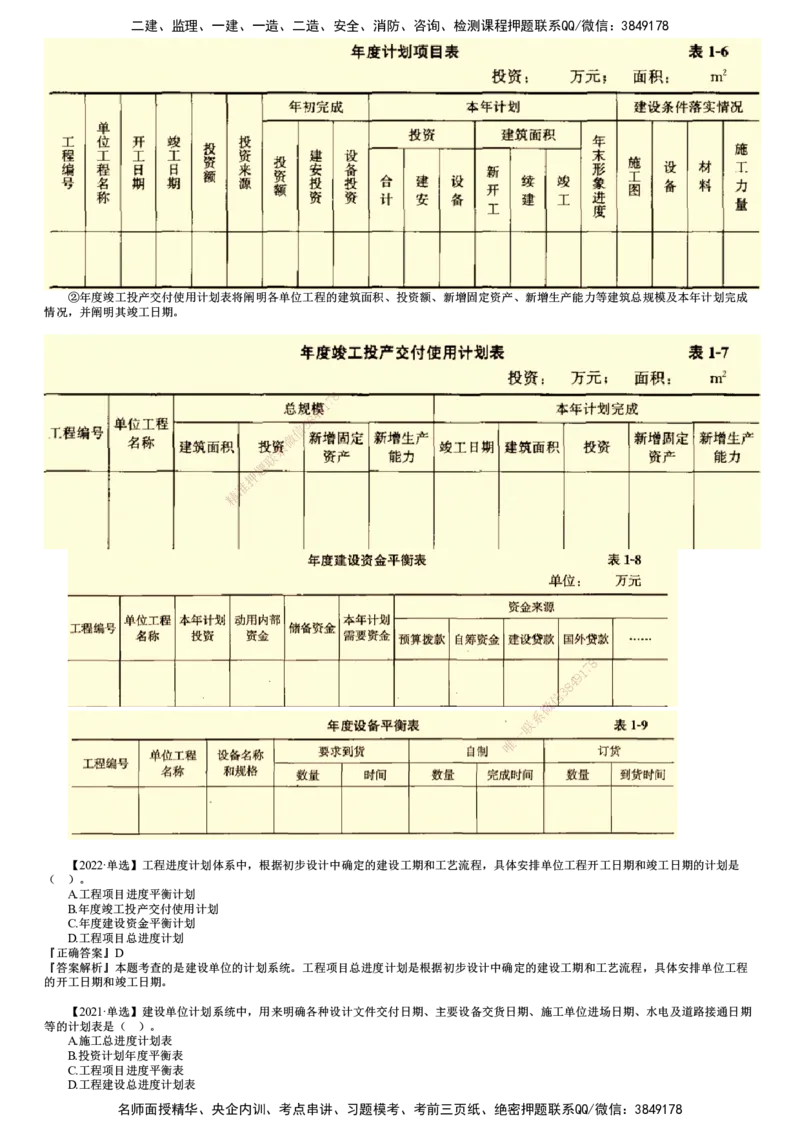 二建、监理、一建、一造、二造、安全、消防、咨询、检测课程押题联系QQ/微信：3849178
年度计划项目表 表 1-6
投资： 万元； 面积： m²
工程编号 单位工程名称 开工日期 竣工日期 投资额 投资来源 年初完成 本年计划 建设条件落实情况
投资额 建安投资 设备投资 投资 建筑面积 年末形象进度 施工图 设备 材料 施工力量
合计 建安 设备 新开工 续建 竣工
②年度竣工投产交付使用计划表将阐明各单位工程的建筑面积、投资额、新增固定资产、新增生产能力等建筑总规模及本年计划完成
情况，并阐明其竣工日期。
年度竣工投产交付使用计划表 表 1-7
投资： 万元； 面积： m²
工程编号 单位工程名称 总规模 本年计划完成
建筑面积 投资 新增固定资产 新增生产能力 竣工日期 建筑面积 投资 新增固定资产 新增生产能力
精准押题联系微信3849178
年度建设资金平衡表 表 1-8
单位： 万元
工程编号 单位工程名称 本年计划投资 动用内部资金 储备资金 本年计划需要资金 资金来源
预算拨款 自筹资金 建设贷款 国外贷款 ……
唯一联系微信3849178
年度设备平衡表 表 1-9
工程编号 单位工程名称 设备名称和规格 要求到货 自制 订货
数量 时间 数量 完成时间 数量 到货时间
【2022·单选】工程进度计划体系中，根据初步设计中确定的建设工期和工艺流程，具体安排单位工程开工日期和竣工日期的计划是
（ ）。
A.工程项目进度平衡计划
B.年度竣工投产交付使用计划
C.年度建设资金平衡计划
D.工程项目总进度计划
『正确答案』D
『答案解析』本题考查的是建设单位的计划系统。工程项目总进度计划是根据初步设计中确定的建设工期和工艺流程，具体安排单位工程
的开工日期和竣工日期。
【2021·单选】建设单位计划系统中，用来明确各种设计文件交付日期、主要设备交货日期、施工单位进场日期、水电及道路接通日期
等的计划表是（ ）。
A.施工总进度计划表
B.投资计划年度平衡表
C.工程项目进度平衡表
D.工程建设总进度计划表
名师面授精华、央企内训、考点串讲、习题模考、考前三页纸、绝密押题联系QQ/微信：3849178